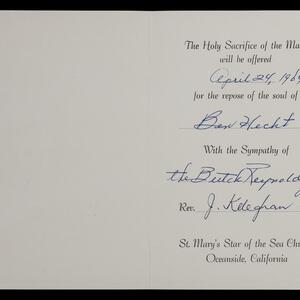 The Holy Sacrifice of the Ma
will be offered
April 24, 196
for the repose of the soul of
Ben Hecht
With the Sympathy of
the Butch Reynolds
Rev. J. Keleghan
St. Mary's Star of the Sea Ch
Oceanside, California